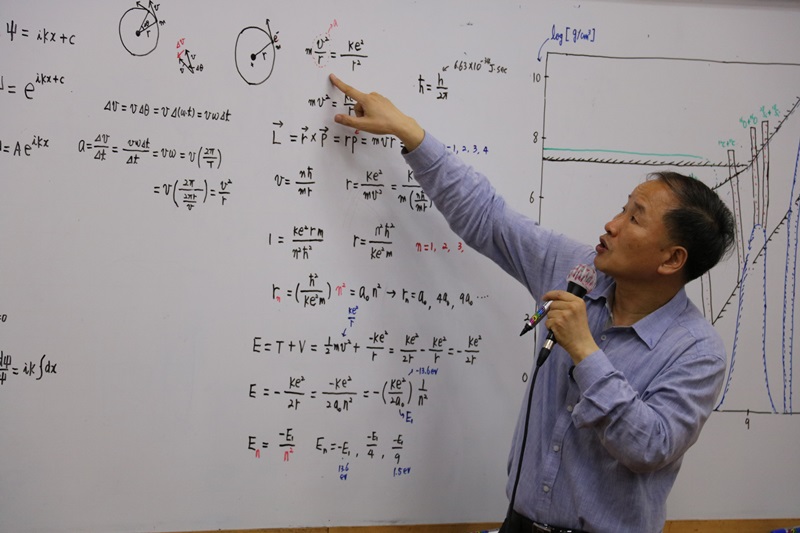 Ψ = ikx + c
= e^{ikx+c}
= Ae^{ikx}
ΔV = VΔθ = VΔ(ωt) = VωΔt
a = ΔV/Δt = VωΔt/Δt = Vω = V(2π/T)
= V(2π/(2πr/V)) = V²/r
dΨ/Ψ = ik∫dx
m V²/r = ke²/r²
ħ = h/2π
6.63×10⁻³⁴ J·sec
L = r × p = rp = mVr
1, 2, 3, 4
V = nħ/mr r = ke²/mV²
1 = ke²rm/n²ħ² r = n²ħ²/ke²m n=1, 2, 3,
rₙ = (ħ²/ke²m) n² = a₀n² → rₙ = a₀, 4a₀, 9a₀ ····
ke²/r
E = T + V = ½mV² + -ke²/r = ke²/2r - ke²/r = -ke²/2r
-13.6eV
E = -ke²/2r = -ke²/2a₀n² = -(ke²/2a₀) 1/n²
E₁
Eₙ = -E₁/n² Eₙ = -E₁, -E₁/4, -E₁/9
13.6 eV 1.5eV
log [g/cm³]
10
8
6
2
0
9